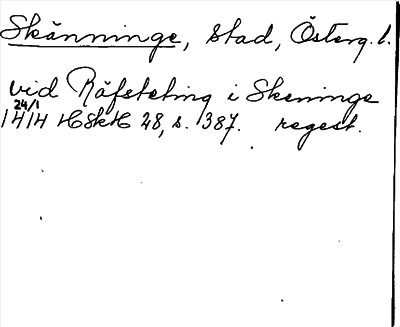 Skänninge, stad, Österg. l.
vid Räfsteting i Skeninge
24/1
1414 HSkH 28, s. 387. regest.